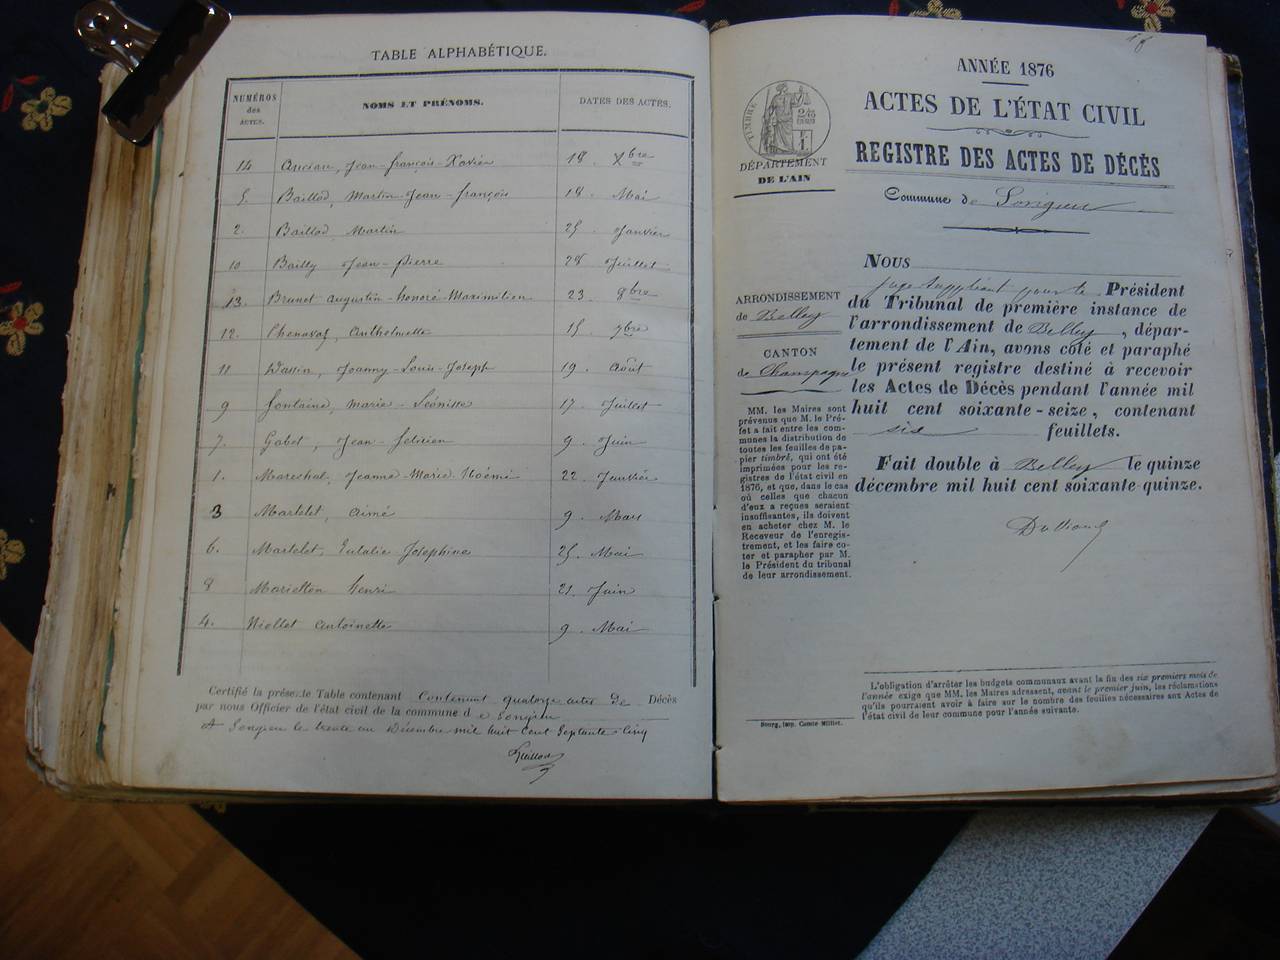 TABLE ALPHABÉTIQUE.
NUMÉROS des ACTES.
NOMS ET PRÉNOMS.
DATES DES ACTES.
14 Jean-françois-Xavier 18. Xbre
5. Baillod, Martin Jean-françois 18 Mai
2. Baillod Martin 25 Janvier
10 Bailly Jean-Pierre 28 Juillet
13. Brunet augustin-honoré-Maximilien 23 8bre
12. Chenavaz, anthelmette 15 7bre
11 Joanny-Louis-Joseph 19. Août
9 fontaine, marie-Léonisse 17. Juillet
7. Gabet, Jean-felicien 9. Juin
1. Marechal, Jeanne-Marie Noémie 22 Janvier
3 Martelet, aimé 9. Mars
6. Martelet, Eulalie Josephine 25. Mai
8 Marietton henri 21 Juin
4. Niollet antoinette 9. Mai
Certifié la présente Table contenant Contenant quatorze actes de Décès
par nous Officier de l'état civil de la commune d e Songieu
A Songieu le trente un Décembre mil huit cent Septante Cinq
Baillod
18
ANNÉE 1876
ACTES DE L'ÉTAT CIVIL
REGISTRE DES ACTES DE DÉCÈS
Commune de Songieu
TIMBRE
DÉPARTEMENT
DE L'AIN
ARRONDISSEMENT
de Belley
CANTON
de Champagne
MM. les Maires sont
prévenus que M. le Pré-
fet a fait entre les com-
munes la distribution de
toutes les feuilles de pa-
pier timbré, qui ont été
imprimées pour les re-
gistres de l'état civil en
1876, et que, dans le cas
où celles que chacun
d'eux a reçues seraient
insuffisantes, ils doivent
en acheter chez M. le
Receveur de l'enregis-
trement, et les faire co-
ter et parapher par M.
le Président du tribunal
de leur arrondissement.
NOUS
juge suppléant pour le Président
du Tribunal de première instance de
l'arrondissement de Belley, dépar-
tement de l'Ain, avons coté et paraphé
le présent registre destiné à recevoir
les Actes de Décès pendant l'année mil
huit cent soixante-seize, contenant
six feuillets.
Fait double à Belley le quinze
décembre mil huit cent soixante-quinze.
L'obligation d'arrêter les budgets communaux avant la fin des six premiers mois de
l'année exige que MM. les Maires adressent, avant le premier juin, les réclamations
qu'ils pourraient avoir à faire sur le nombre des feuilles nécessaires aux Actes de
l'état civil de leur commune pour l'année suivante.
Bourg, Imp. Comte Milliet.